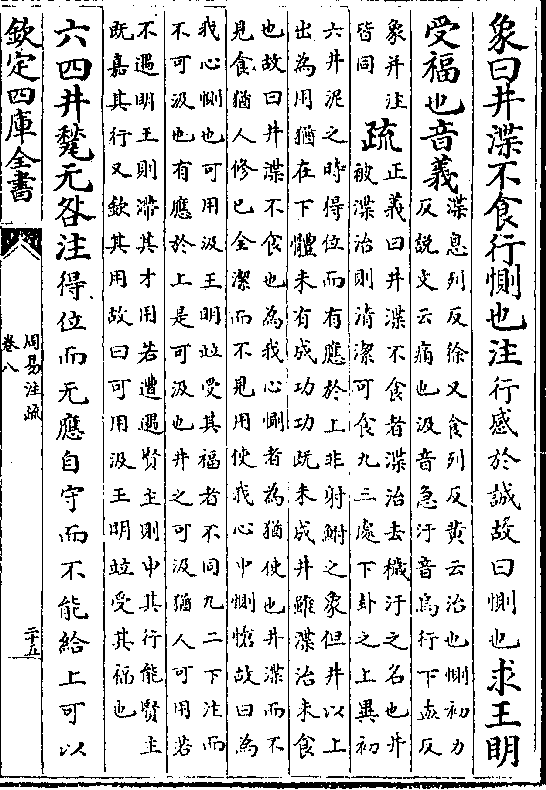 象曰井渫不食行惻也注行感於誠故曰惻也求王明
受福也音義
渫息列反徐又食列反黃云治也惻初力
反說文云痛也汲音急汙音烏行下孟反
象并注
皆同
疏
正義曰井渫不食者渫治去穢汙之名也井
被渫治則清潔可食九三處下卦之上異初
六井泥之時得位而有應於上非射鮒之象但井以上
出為用猶在下體未有成功功既未成井雖渫治未食
也故曰井渫不食也為我心惻者為猶使也井渫而不
見食猶人修己全潔而不見用使我心中惻愴故曰為
我心惻也可用汲王明竝受其福者不同九二下注而
不可汲也有應於上是可汲也井之可汲猶人可用若
不遇明王則滯其才用若遭遇賢主則申其行能賢主
既嘉其行又欽其用故曰可用汲王明竝受其福也
六四井甃无咎注得位而无應自守而不能給上可以
欽定四庫全書
周易注疏
卷八
二十五